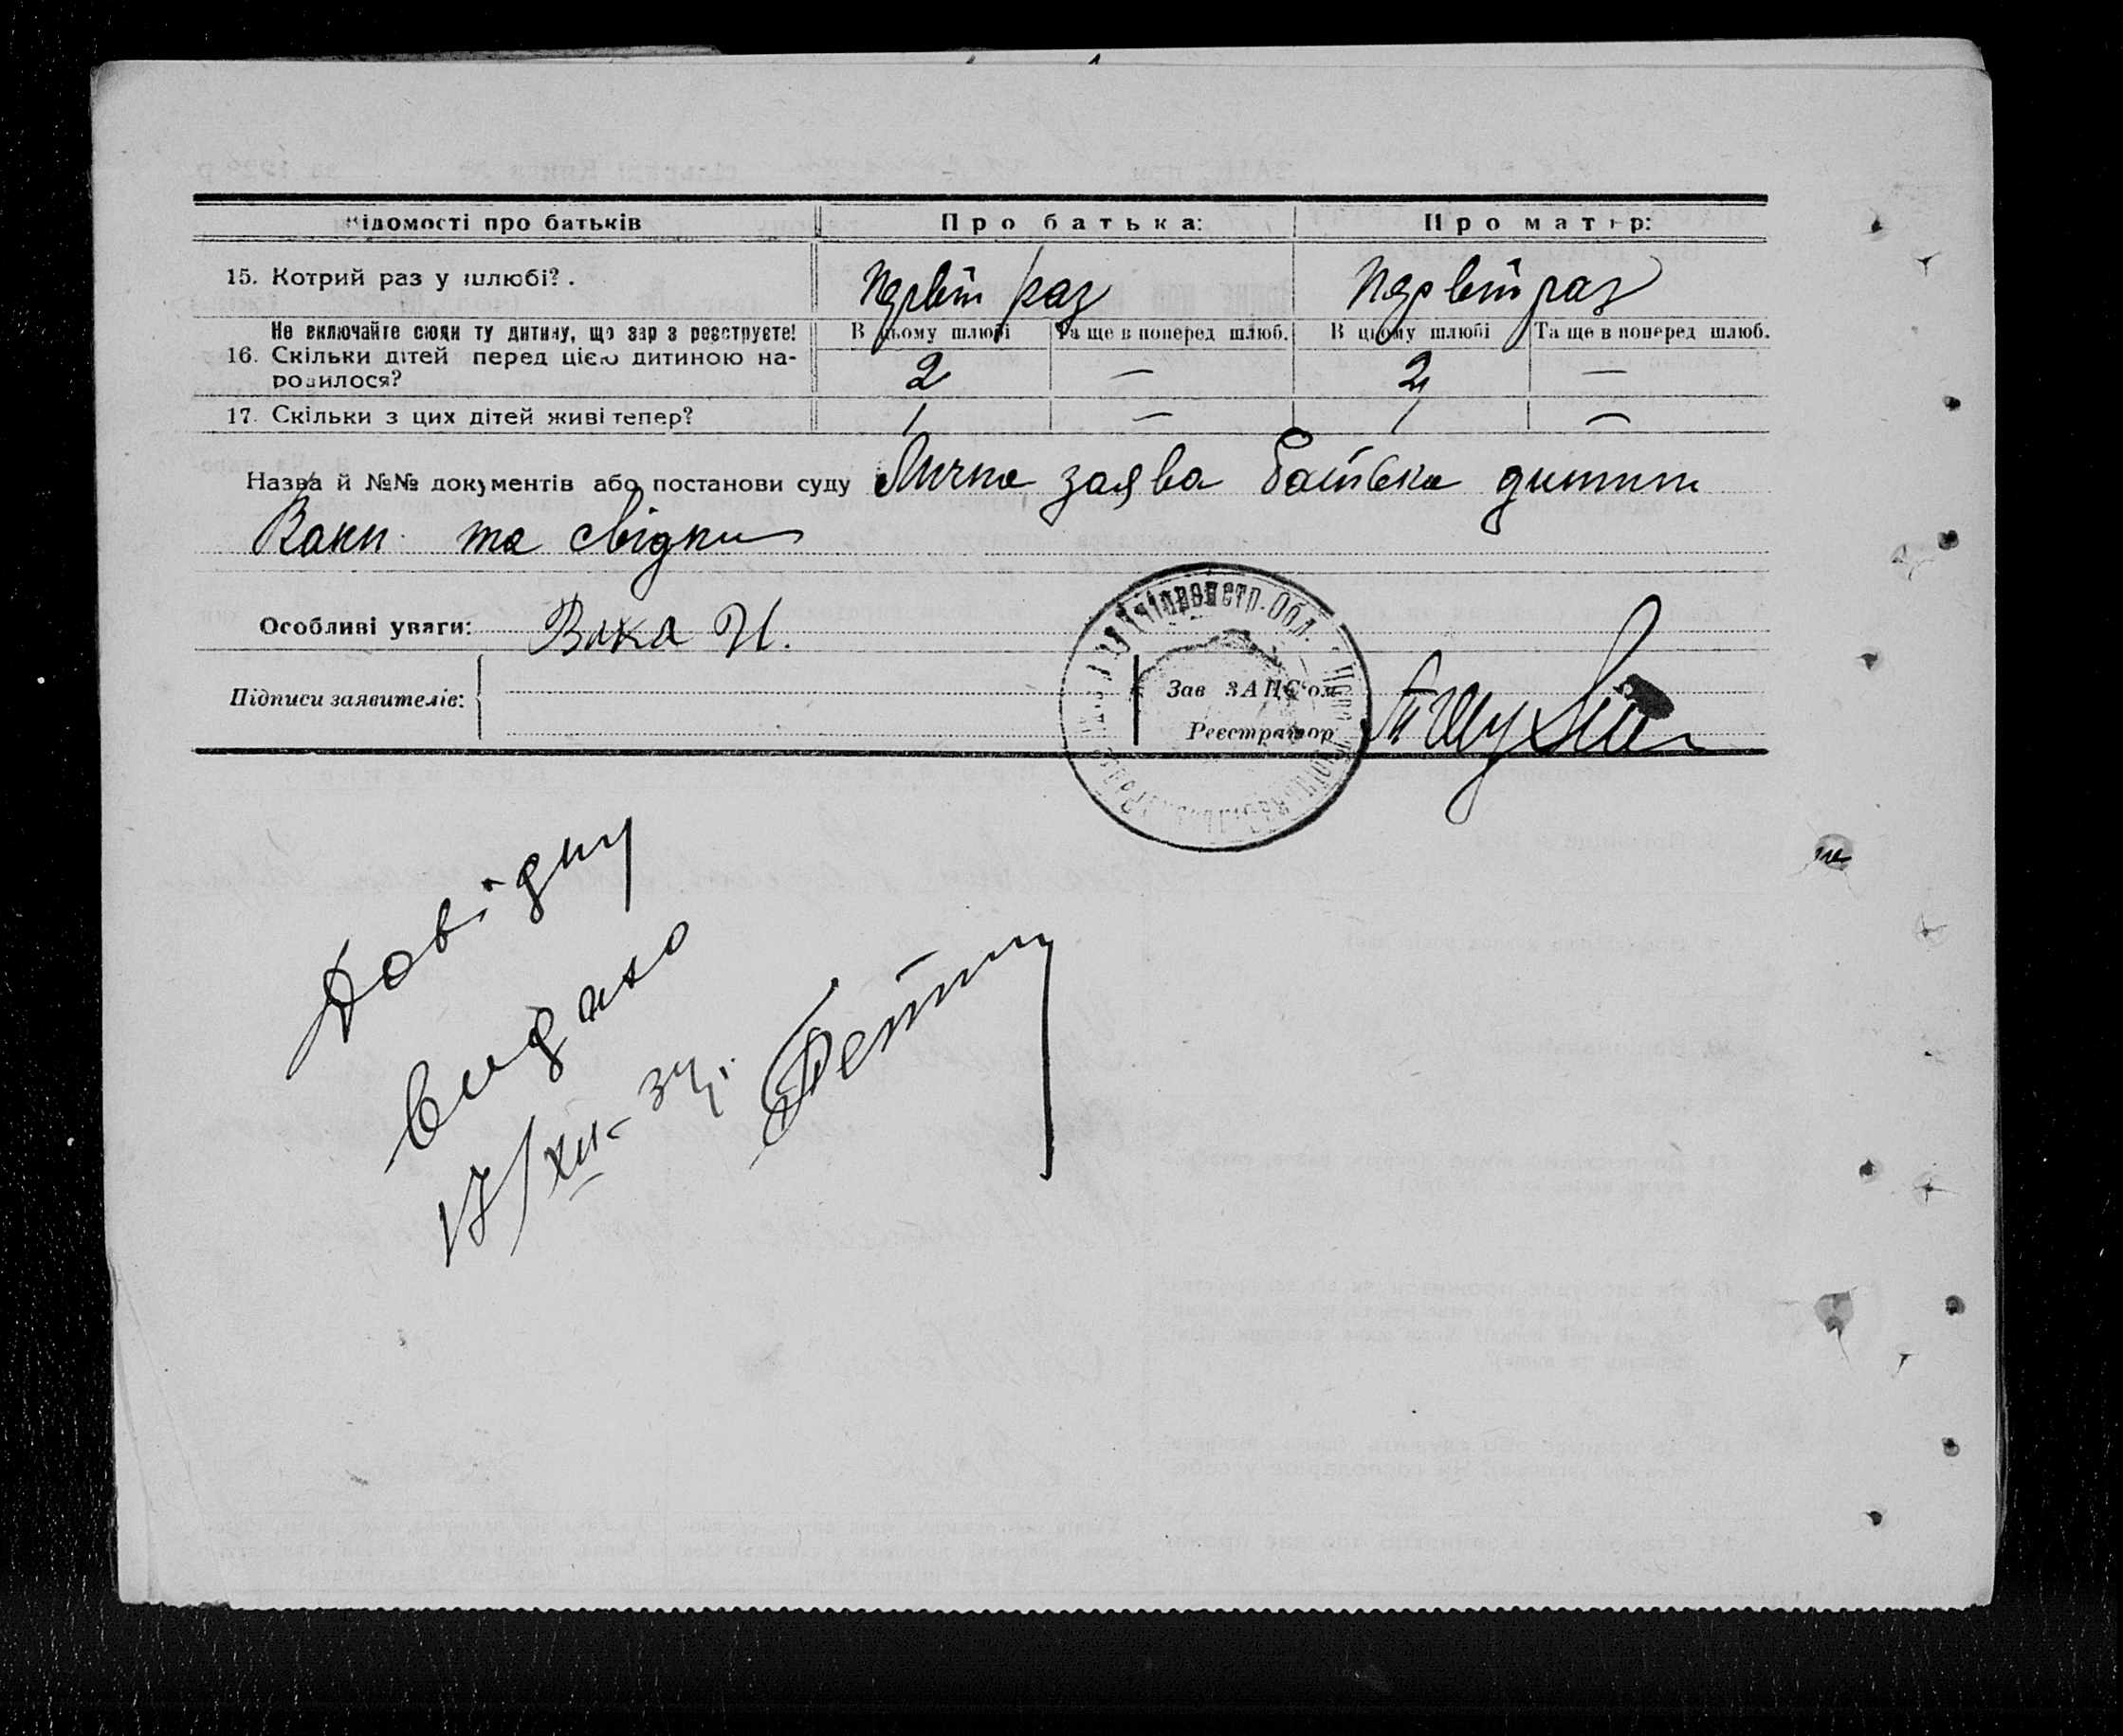 Відомості про батьків Про батька: Про матір:
15. Котрий раз у шлюбі? . Первий раз Первий раз
Не включайте сюди ту дитину, що зараз реєструєте! В цьому шлюбі Та ще в поперед шлюб. В цьому шлюбі Та ще в поперед шлюб.
16. Скільки дітей перед цією дитиною на-
родилося? 2 — 2 —
17. Скільки з цих дітей живі тепер? 1 — 1 —
Назва й №№ документів або постанови суду Лична заява батька дитини
Ваки та свідки
Особливі уваги: Вака И.
Підписи заявителів:
Зав ЗАПС'ом
Реєстратор
Дніпропетр. Обл.
Довідку
видано
17/XII-34р.